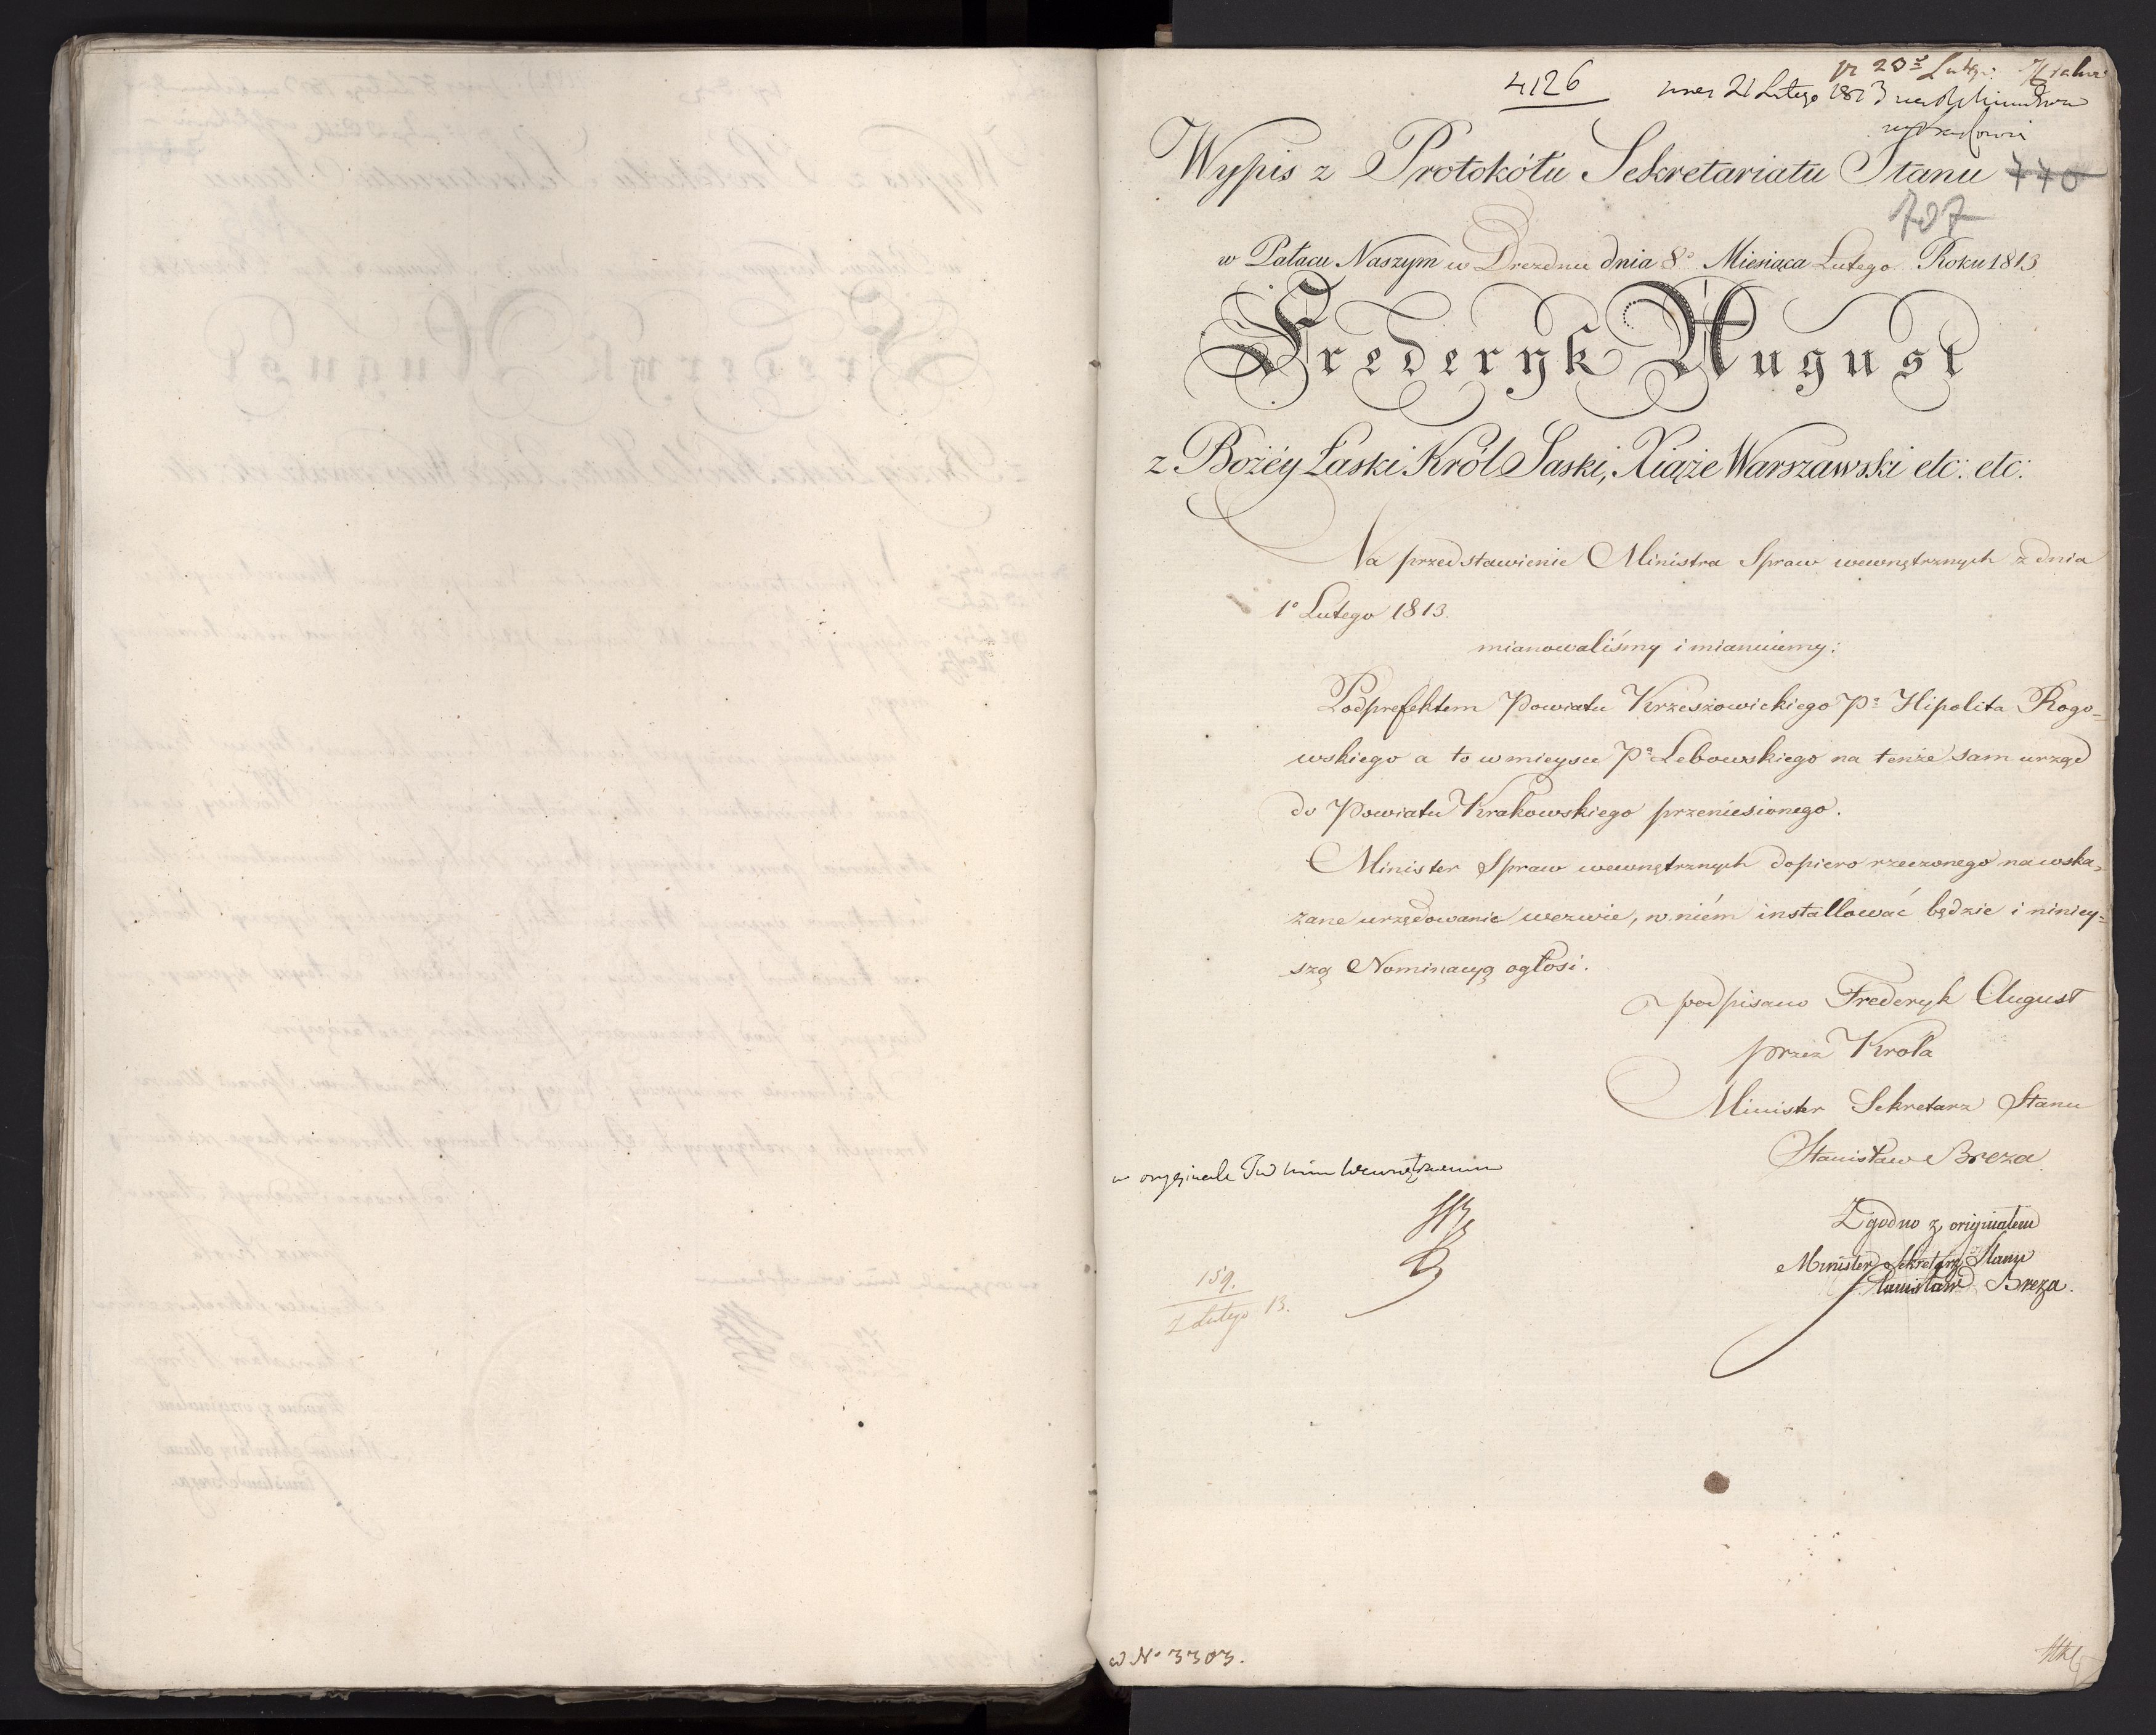 4126
pr 23 Lutego
21 Lutego 1813
Wypis z Protokółu Sekretariatu Stanu 770
707
w Pałacu Naszym w Dreznie dnia 8o Miesiąca Lutego Roku 1813
Frederyk August
z Bożéy Łaski Król Saski, Xiąże Warszawski etc: etc:
Na przedstawienie Ministra Spraw wewnętrznych z dnia
1o Lutego 1813.
mianowaliśmy i mianuiemy:
Podprefektem Powiatu Krzeszowickiego Pa Hipolita Rogo-
wskiego a to w mieysce Pa Lebowskiego na tenże sam urząd
do Powiatu Krakowskiego przeniesionego.
Minister Spraw wewnętrznych dopiero rzeczonego na wska-
zane urzędowanie wezwie, w niém installować będzie i niniey-
szą Nominacyą ogłosi.
podpisano Frederyk August
przez Króla
Minister Sekretarz Stanu
Stanisław Breza
w oryginale
Zgodno z originałem
Minister Sekretarz Stanu
Stanisław Breza.
159.
Lutego 13.
w No 3303.